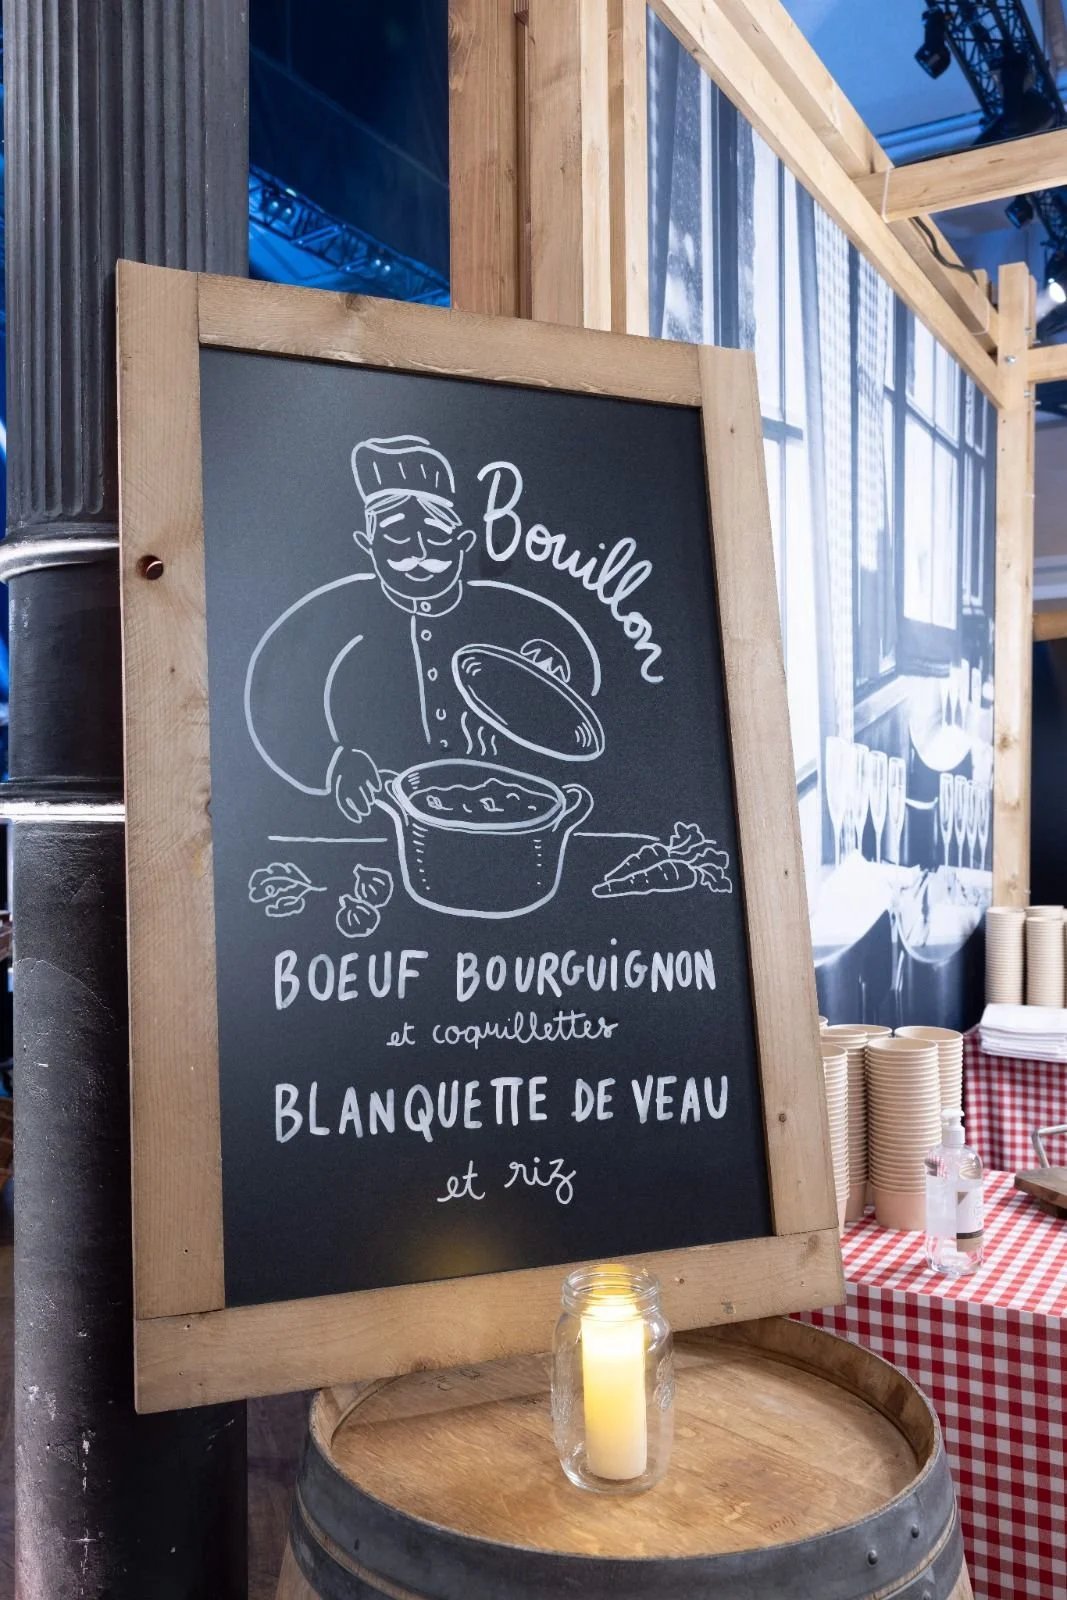 Bouillon
BOEUF BOURGUiGNON
et coquillettes
BLANQUETTE DE VEAU
et riz